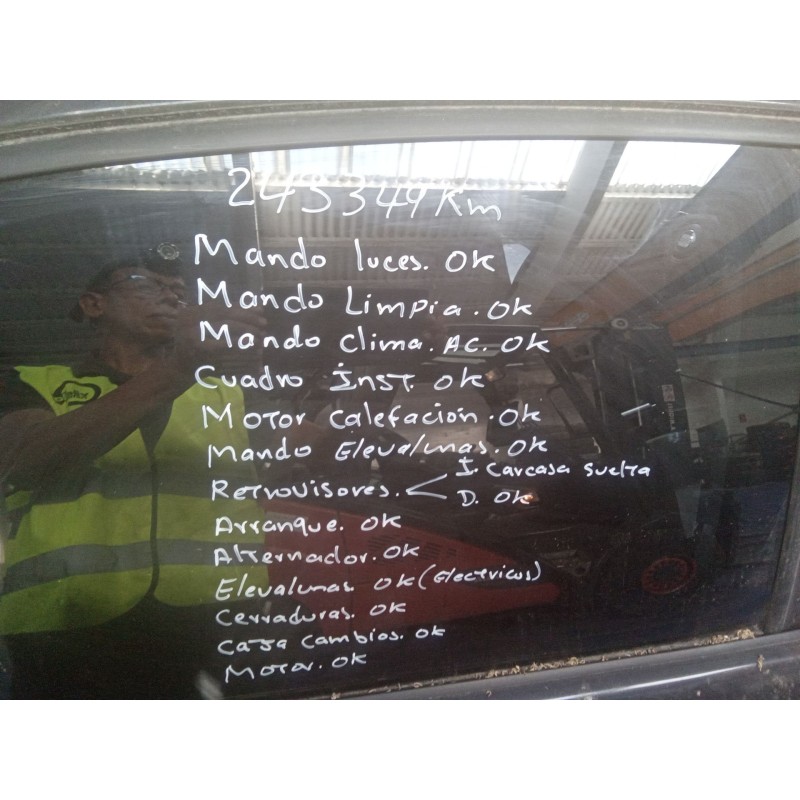 243349 Km
Mando luces. OK
Mando Limpia. OK
Mando clima. AC. OK
Cuadro Inst. OK
Motor calefación. OK
Mando Elevalunas. OK
Retrovisores. I. Carcasa suelta
D. OK
Arranque. OK
Alternador. OK
Elevalunas OK (Electricos)
Cerraduras. OK
Caja Cambios. OK
Motor. OK